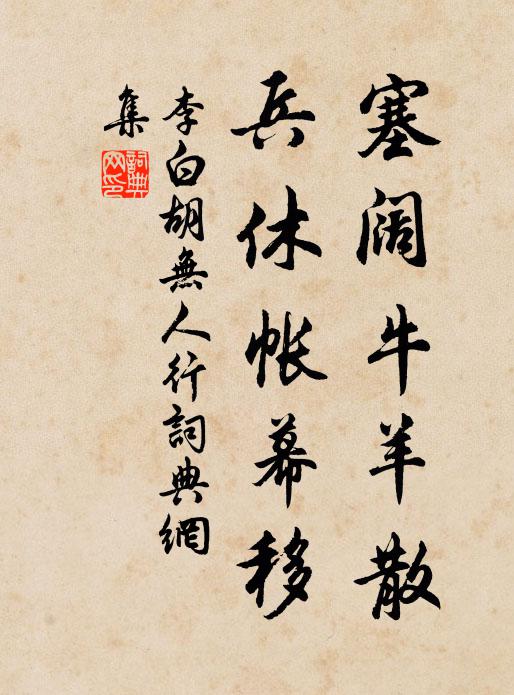 塞阔牛羊散
兵休帐幕移
李白胡無人行詞典網
集
詞典
网印